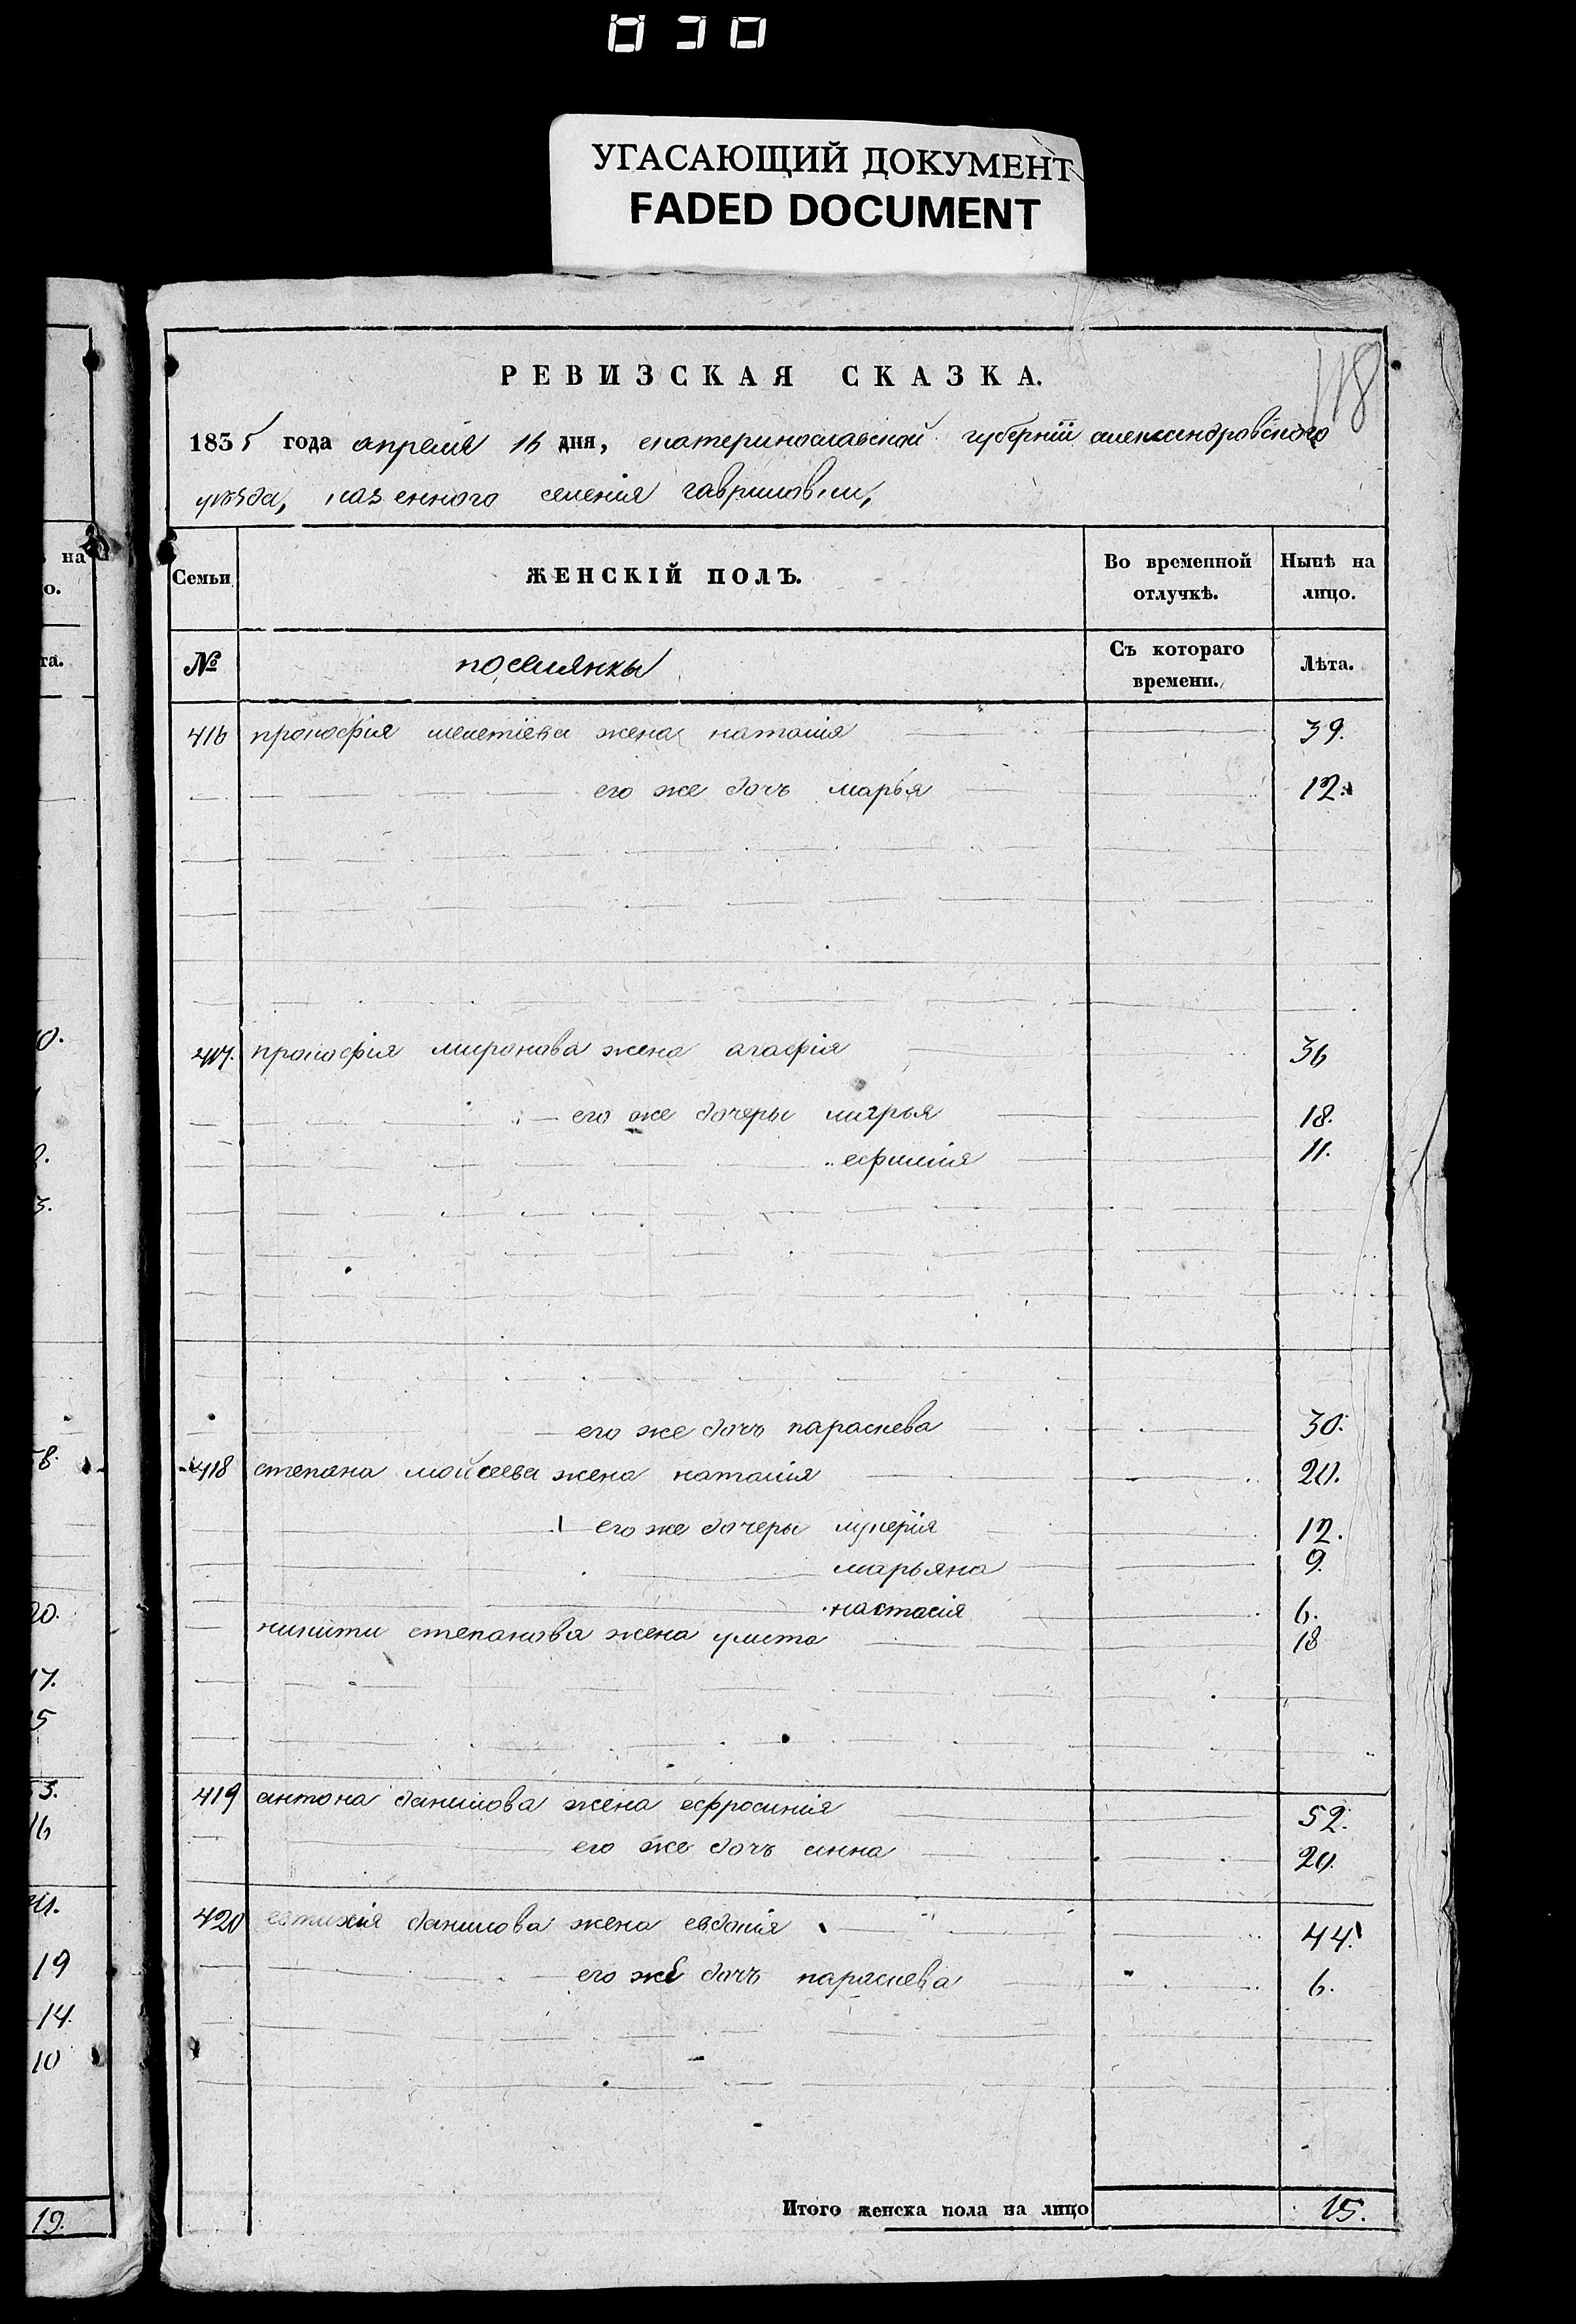 030
УГАСАЮЩИЙ ДОКУМЕНТ
FADED DOCUMENT
118
РЕВИЗСКАЯ СКАЗКА.
1835 года апреля 16 дня, екатеринославской губернїи александровского
уѣзда, казенного селенія гавриловки,
Семьи ЖЕНСКІЙ ПОЛЪ. Во временной отлучкѣ. Нынѣ на лицо.
№ поселянкы Съ котораго времени. Лѣта.
416 прокофія мелетіева жена наталія 39.
его же дочъ марья 12.
417. прокофія миронова жена агафія 36
его же дочеры марья 18.
ефимія 11.
его же дочъ параскева 30.
418 степана мойсеева жена наталія 20.
его же дочеры лукерія 12.
марьяна 9.
настасія 6.
никиты степанова жена улита 18
419 антона данилова жена ефросинія 52.
его же дочъ анна 20.
420 евтихія данилова жена евдокія 44.
его же дочъ параскева 6.
Итого женска пола на лицо 15.
на
о.
та.
19
14.
10
19.